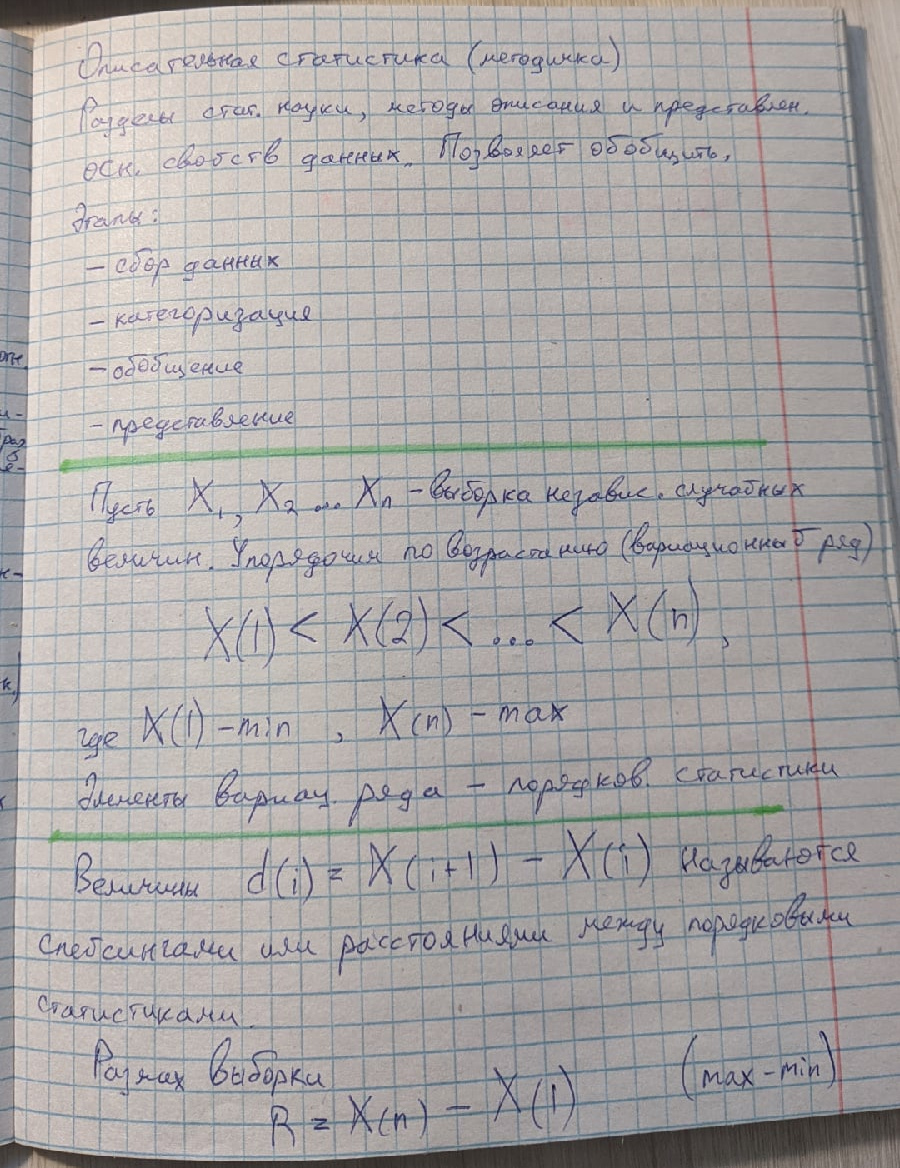 Описательная статистика (методичка)
Разделы стат. науки, методы описания и представлен.
осн. свойств данных. Позволяет обобщить,
Этапы:
- сбор данных
- категоризация
- обобщение
- представление
Пусть X₁, X₂ ... Xₙ - выборка независ. случайных
величин. Упорядочим по возрастанию (вариационный ряд)
X(1) < X(2) < ... < X(n),
где X(1) - min , X(n) - max
Элементы вариац. ряда - порядков. статистики
Величины d(i) = X(i+1) - X(i) называются
спейсингами или расстояниями между порядковыми
статистиками.
Размах выборки
R = X(n) - X(1) (max - min)